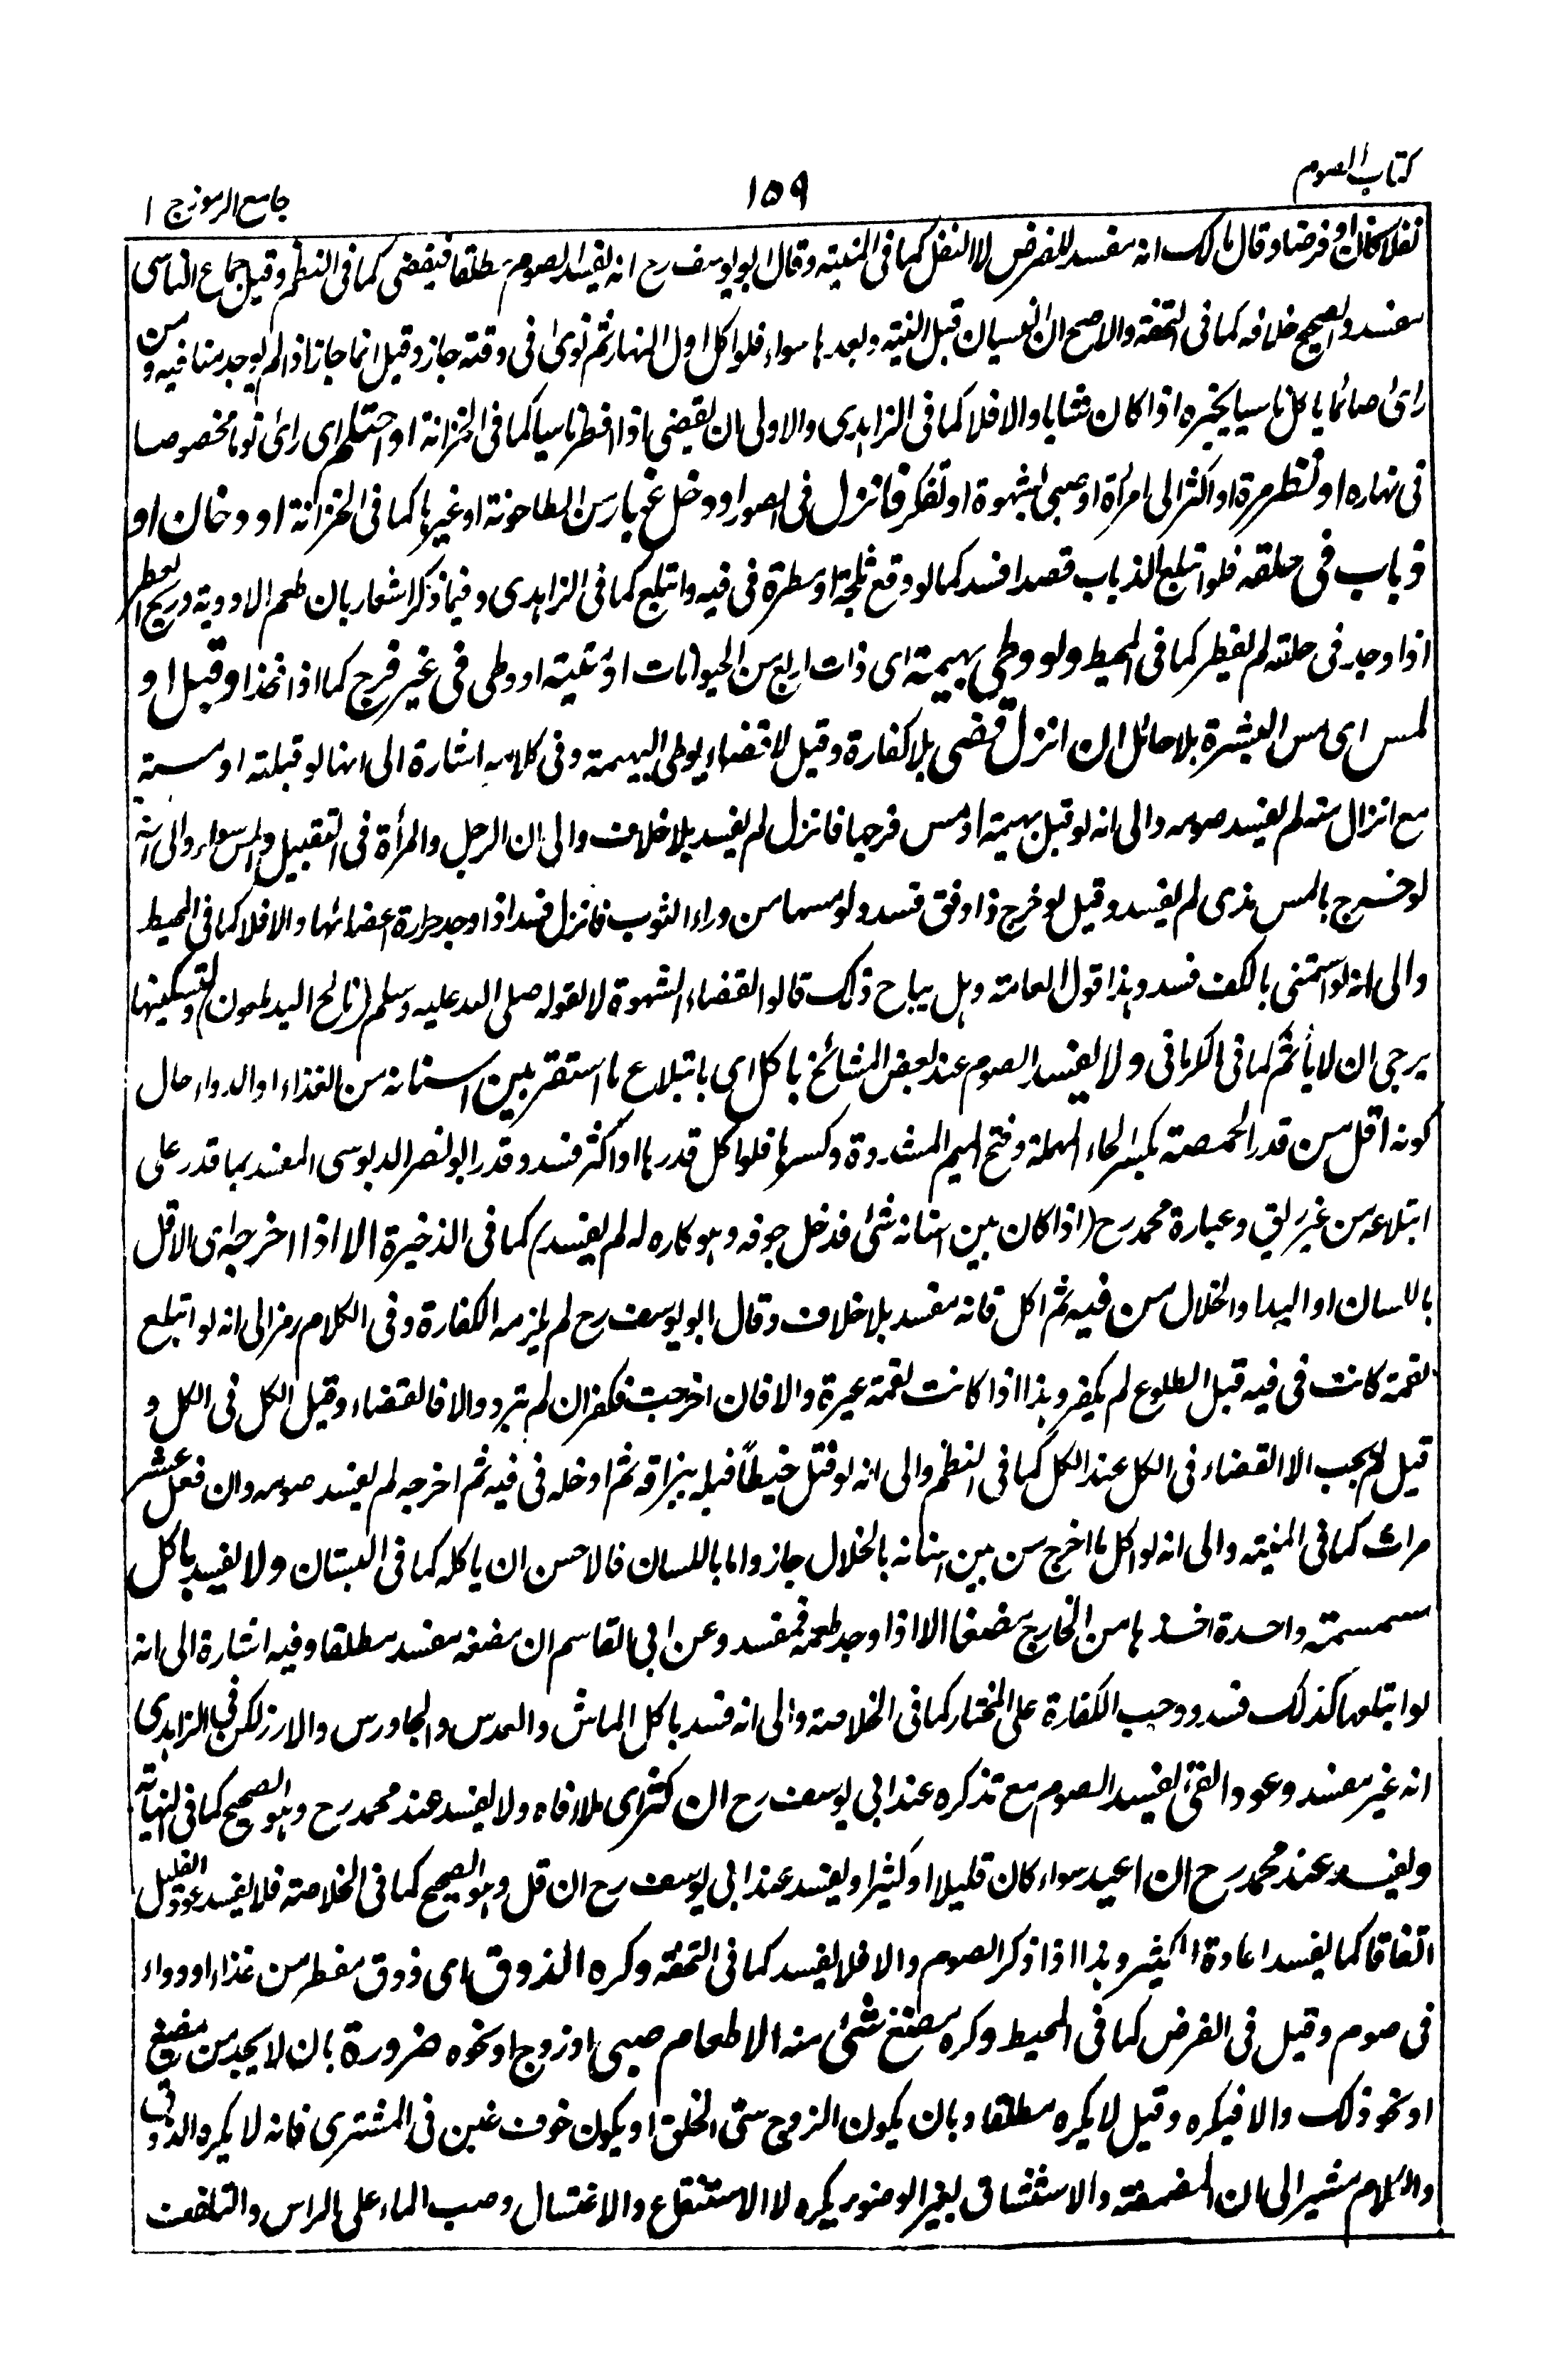 كتاب الصوم
١٥٩
جامع الرموز ج ١
نفلا كان او فرضا وقال مالك انه مفسد للفرض لا النفل كما في المنية وقال ابو يوسف رح انه يفسد الصوم مطلقا فيقضي كما في النظم وقيل جماع الناسي
مفسد والصحيح خلافه كما في التحفة والاصح ان النسيان قبل النية وبعدها سواء فلو اكل اول النهار ثم نوى في وقته جاز وقيل انما جاز اذا لم يوجد منافيه ومن
راى صائما ياكل ناسيا يخبره اذا كان شابا والا فلا كما في الزاهدي والاولى ان يقضي اذا افطر ناسيا كما في الخزانة او احتلم اى راى نوما مخصوصا
في نهاره او نظر مرة او اكثر الى امرأة او صبي بشهوة او تفكر فانزل في الصور او دخل غبار من الطاحونة او غيرها كما في الخزانة او دخان او
ذباب في حلقه فلو ابتلع الذباب قصدا فسد كما لو وقع ثلجة او مطرة في فيه وابتلع كما في الزاهدي وفيما ذكر اشعار بان طعم الادوية وريح العطر
اذا وجد في حلقه لم يفطر كما في المحيط ولو وطي بهيمة اى ذات اربع من الحيوانات او ميتة او وطى في غير فرج كما اذا فخذ او قبل او
لمس اى مس البشرة بلا حائل ان انزل قضى بلا كفارة وقيل لا قضاء بوطى البهيمة وفي كلامه اشارة الى انها لو قبلته او مسته
مع انزال منه لم يفسد صومه والى انه لو قبل بهيمة او مس فرجها فانزل لم يفسد بلا خلاف والى ان الرجل والمرأة في التقبيل والمس سواء والى انه
لو خرج بالمس مذى لم يفسد وقيل لو خرج ذا دفق فسد ولو مسها من وراء الثوب فانزل فسد اذا وجد حرارة اعضائها والا فلا كما في المحيط
والى انه لو استمنى بالكف فسد وهذا قول العامة وهل يباح ذلك قالوا لقضاء الشهوة لا لقوله صلى الله عليه وسلم (ناكح اليد ملعون) ولتسكينها
يرجى ان لا يأثم كما في الكرماني ولا يفسد الصوم عند بعض المشائخ باكل اى بابتلاع ما استقر بين اسنانه من الغذاء او الدواء حال
كونه اقل من قدر الحمصة بكسر الحاء المهملة وفتح الميم المشددة وكسرها فلو اكل قدرها او اكثر فسد وقدر ابو نصر الدبوسي المفسد بما قدر على
ابتلاعه من غير ريق وعبارة محمد رح (اذا كان بين اسنانه شئ فدخل جوفه وهو كاره له لم يفسد) كما في الذخيرة الا اذا اخرجه اى الاقل
باللسان او اليد او الخلال من فيه ثم اكل فانه مفسد بلا خلاف وقال ابو يوسف رح لم يلزمه الكفارة وفي الكلام رمز الى انه لو ابتلع
لقمة كانت في فيه قبل الطلوع لم يكفر وهذا اذا كانت لقمة غيره والا فان اخرجت فكفر ان لم تبرد والا فالقضاء وقيل الكل في الكل و
قيل لم يجب الا القضاء في الكل عند الكل كما في النظم والى انه لو فتل خيطا فبله ببزاقه ثم ادخله في فيه ثم اخرجه لم يفسد صومه وان فعل عشر
مرات كما في المنية والى انه لو اكل ما اخرج من بين اسنانه بالخلال جاز واما باللسان فالاحسن ان ياكله كما في البستان ولا يفسد باكل
سمسمة واحدة اخذها من الخارج مضغا الا اذا وجد طعمه فمفسد وعن ابي القاسم ان مضغه مفسد مطلقا وفيه اشارة الى انه
لو ابتلعها كذلك فسد ووجب الكفارة على المختار كما في الخلاصة والى انه فسد باكل الماش والعدس والجاورس والارز لكن في الزاهدي
انه غير مفسد وعود القئ يفسد الصوم مع تذكره عند ابي يوسف رح ان كثر اى ملأ فاه ولا يفسد عند محمد رح وهو الصحيح كما في النهاية
ويفسد عند محمد رح ان اعيد سواء كان قليلا او كثيرا ويفسد عند ابي يوسف رح ان قل وهو الصحيح كما في الخلاصة فلا يفسد عود القليل
اتفاقا كما يفسد اعادة الكثير وهذا اذا ذكر الصوم والا فلا يفسد كما في التحفة وكره الذوق اى ذوق مفطر من غذاء او دواء
في صوم وقيل في الفرض كما في المحيط وكره مضغ شئ منه الا طعام صبي او زوج او نحوه ضرورة بان لا يجد من يمضغ
او نحو ذلك والا فيكره وقيل لا يكره مطلقا وبان يكون الزوج سئ الخلق او يكون خوف غبن في المشترى فانه لا يكره الذوق
والكلام مشير الى ان المضمضة والاستنشاق بغير الوضوء يكره لا الاستنقاع والاغتسال وصب الماء على الراس والتلفف